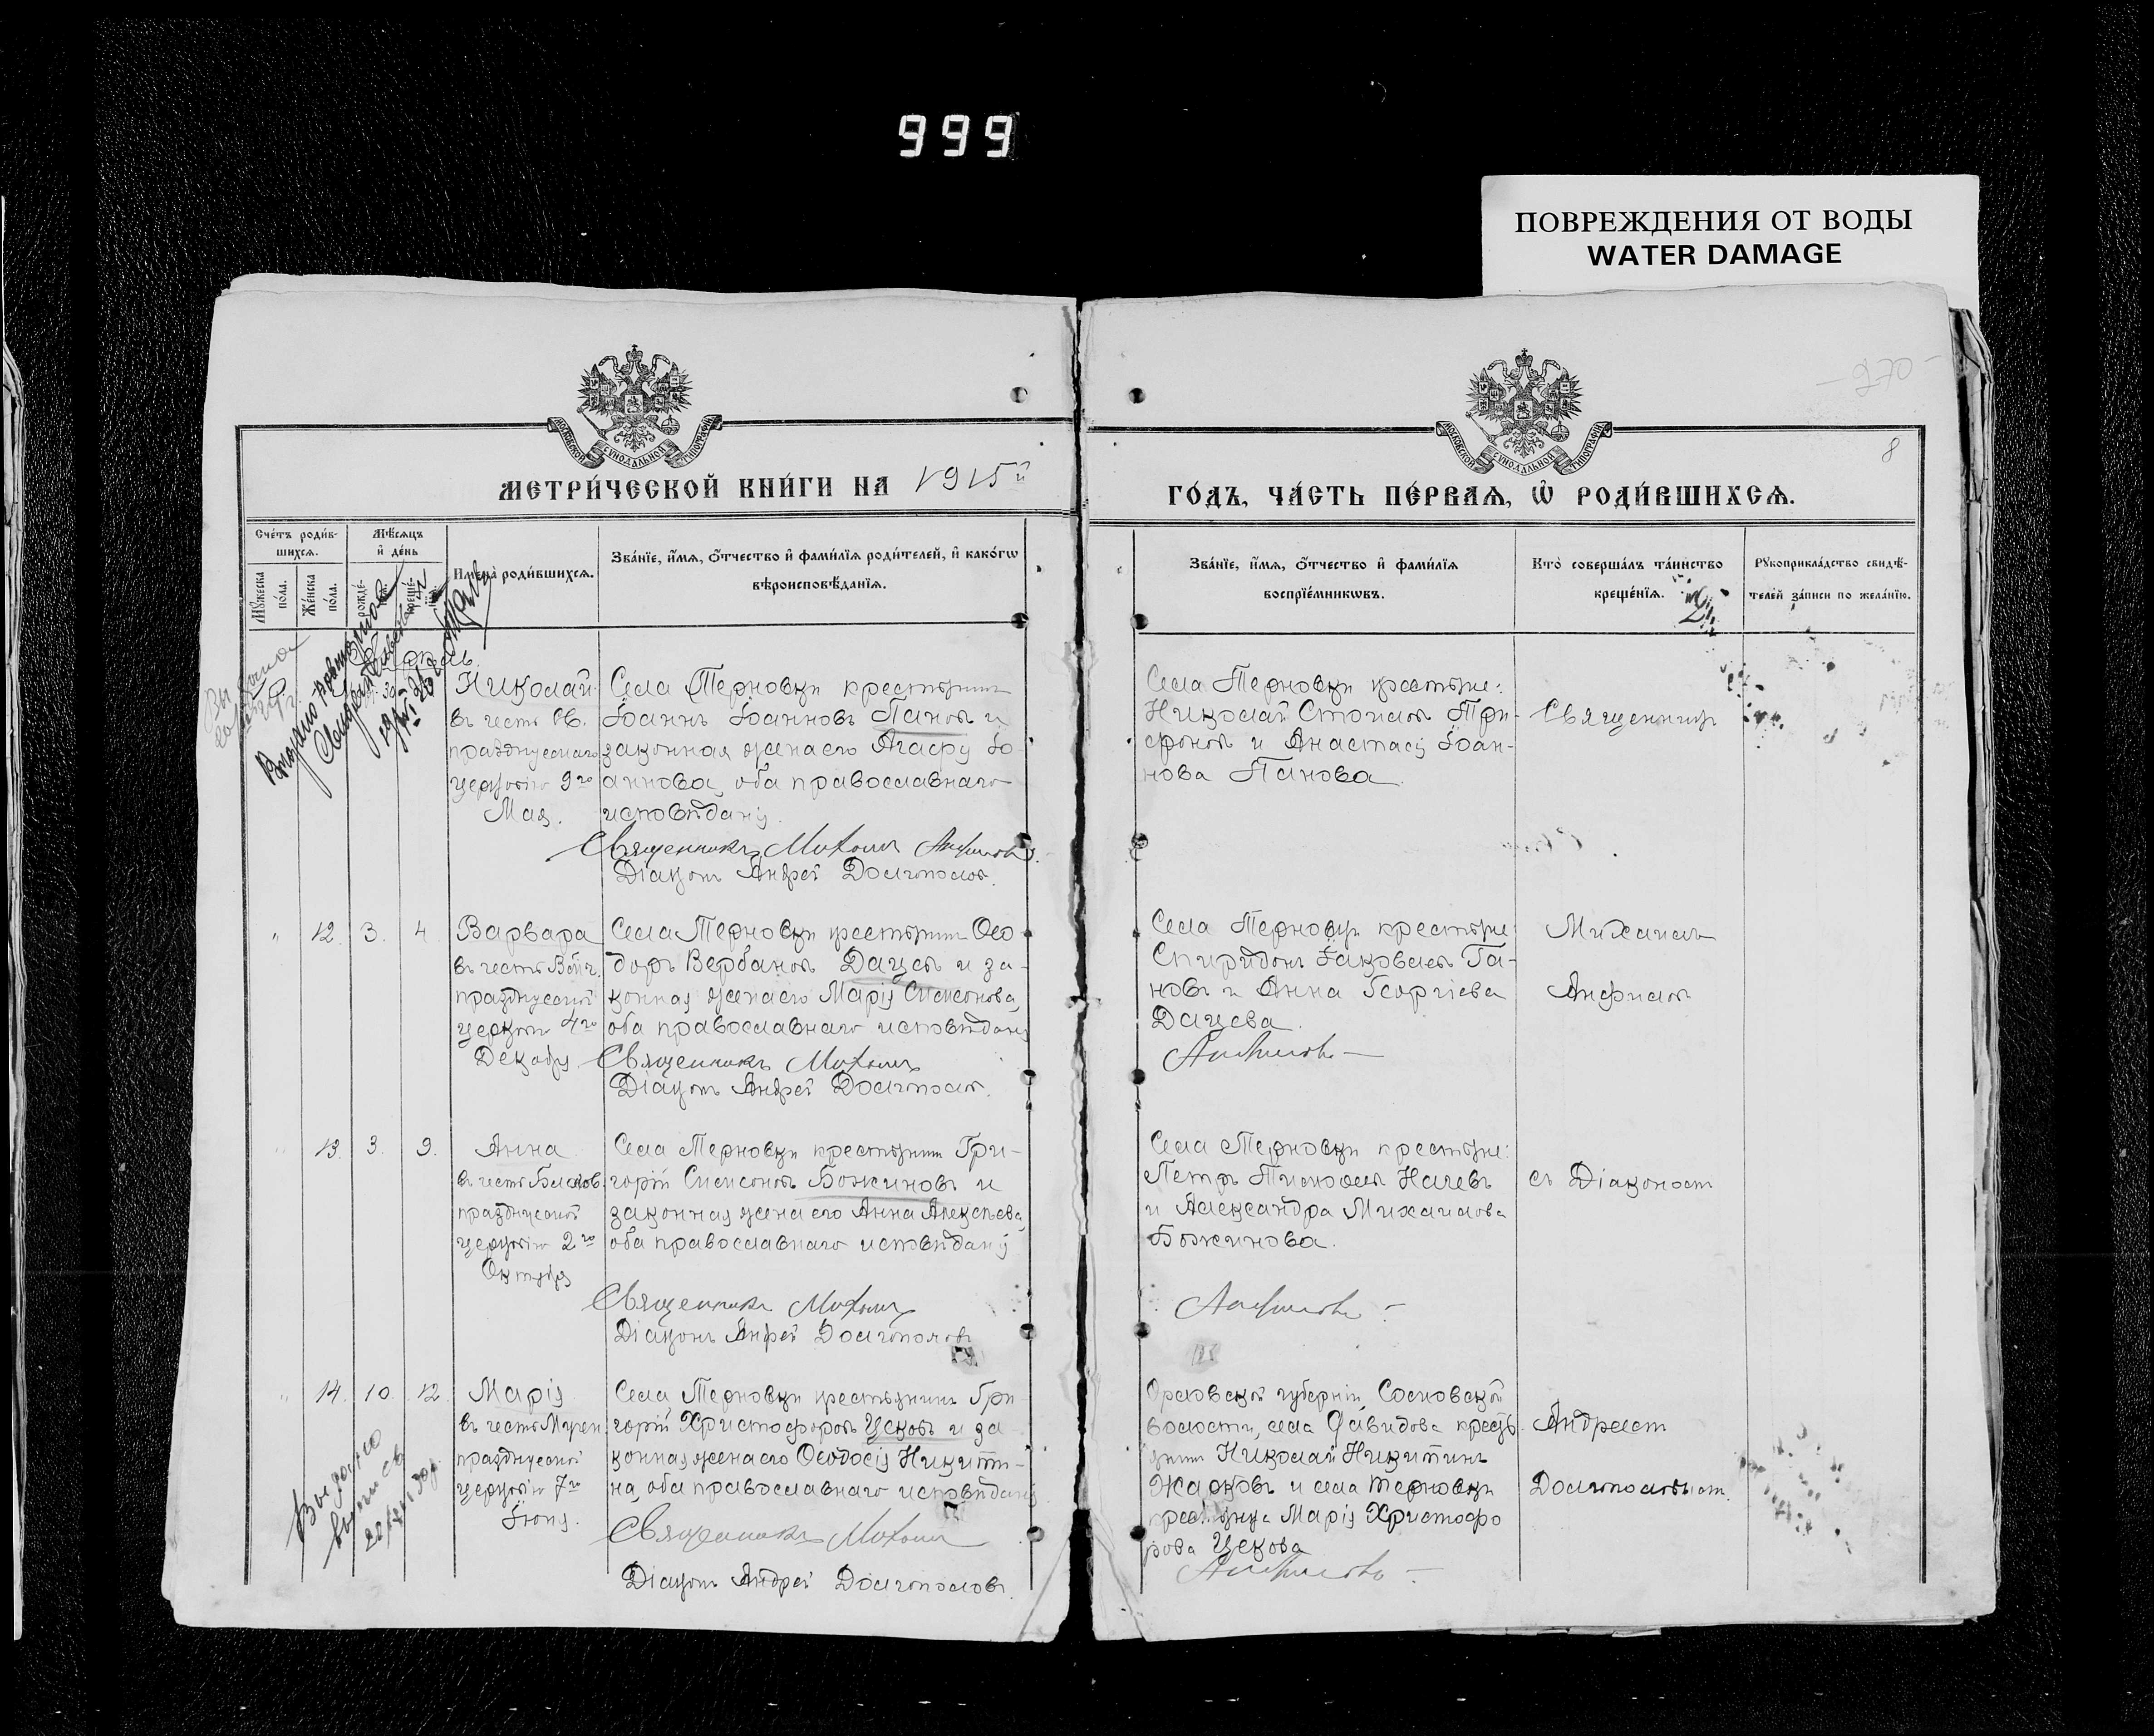 999
ПОВРЕЖДЕНИЯ ОТ ВОДЫ
WATER DAMAGE
270
8
МОСКОВСКОЙ СУНОДАЛЬНОЙ ТИПОГРАФІИ
МОСКОВСКОЙ СУНОДАЛЬНОЙ ТИПОГРАФІИ
МЕТРИ́ЧЕСКОЙ КНИ́ГИ НА 1915й
ГО́ДЪ, ЧА́СТЬ ПЕ́РВАѦ, Ѡ҆ РОДИ́ВШИХСѦ.
Сче́тъ роди́в-
шихсѧ.
Мꙋ́жеска по́ла.
Же́нска по́ла.
Мѣ́сѧцъ
и҆ де́нь
рожде́-
креще́-
И҆мена̀ роди́вшихсѧ.
Зва́нїе, и҆́мѧ, ѻ҆́тчество и҆ фами́лїѧ роди́телей, и҆ како́гѡ
вѣроисповѣ́данїѧ.
Зва́нїе, и҆́мѧ, ѻ҆́тчество и҆ фами́лїѧ
воспрїе́мникѡвъ.
Кто̀ соверша́лъ та́инство
креще́нїѧ.
Рꙋкоприкла́дство свидѣ́-
телей за́писи по жела́нїю.
Николай
въ честь Св.
празднуемаго
церковію 9го
Мая.
Села Терновки крестьянинъ
Іоаннъ Іоанновъ Пановъ и
законная жена его Агаѳія Іо-
аннова, оба православнаго
исповѣданія.
Священникъ Михаилъ Анфимовъ.
Діаконъ Андрей Долгополовъ.
Села Терновки крестьяне:
Николай Стоиловъ Три-
фоновъ и Анастасія Іоан-
нова Панова.
Священникъ
12. 3. 4.
Варвара
въ честь Велмч.
празднуемой
церковію 4го
Декабря
Села Терновки крестьянинъ Ѳео-
доръ Вербановъ Дацевъ и за-
конная жена его Марія Симеонова,
оба православнаго исповѣданія
Священникъ Михаилъ
Діаконъ Андрей Долгополовъ.
Села Терновки крестьяне
Спиридонъ Іаковлевъ Га-
новъ и Анна Георгіева
Дацева.
Анфимовъ
Михаилъ
Анфимовъ
13. 3. 9.
Анна
въ честь Благов.
празднуемой
церковію 2го
Октября
Села Терновки крестьянинъ Гри-
горій Симеоновъ Божиновъ и
законная жена его Анна Алексѣева,
оба православнаго исповѣданія
Священникъ Михаилъ
Діаконъ Андрей Долгополовъ
Села Терновки крестьяне:
Петръ Начевъ
и Александра Михаилова
Божинова.
Анфимовъ
съ Діакономъ
14. 10. 12.
Марія
въ честь Мучен.
празднуемой
церковію 7го
Іюня.
Села Терновки крестьянинъ Гри-
горій Христофоровъ Цековъ и за-
конная жена его Ѳеодосія Никити-
на, оба православнаго исповѣданія
Священникъ Михаилъ
Діаконъ Андрей Долгополовъ.
Орловской губерніи, Сосковской
волости, села Давидова кресть-
янинъ Николай Никитинъ
Жарковъ и села Терновки
крестьянка Марія Христофо
рова Цекова
Анфимовъ
Андреемъ
Долгополовымъ.
Выдано